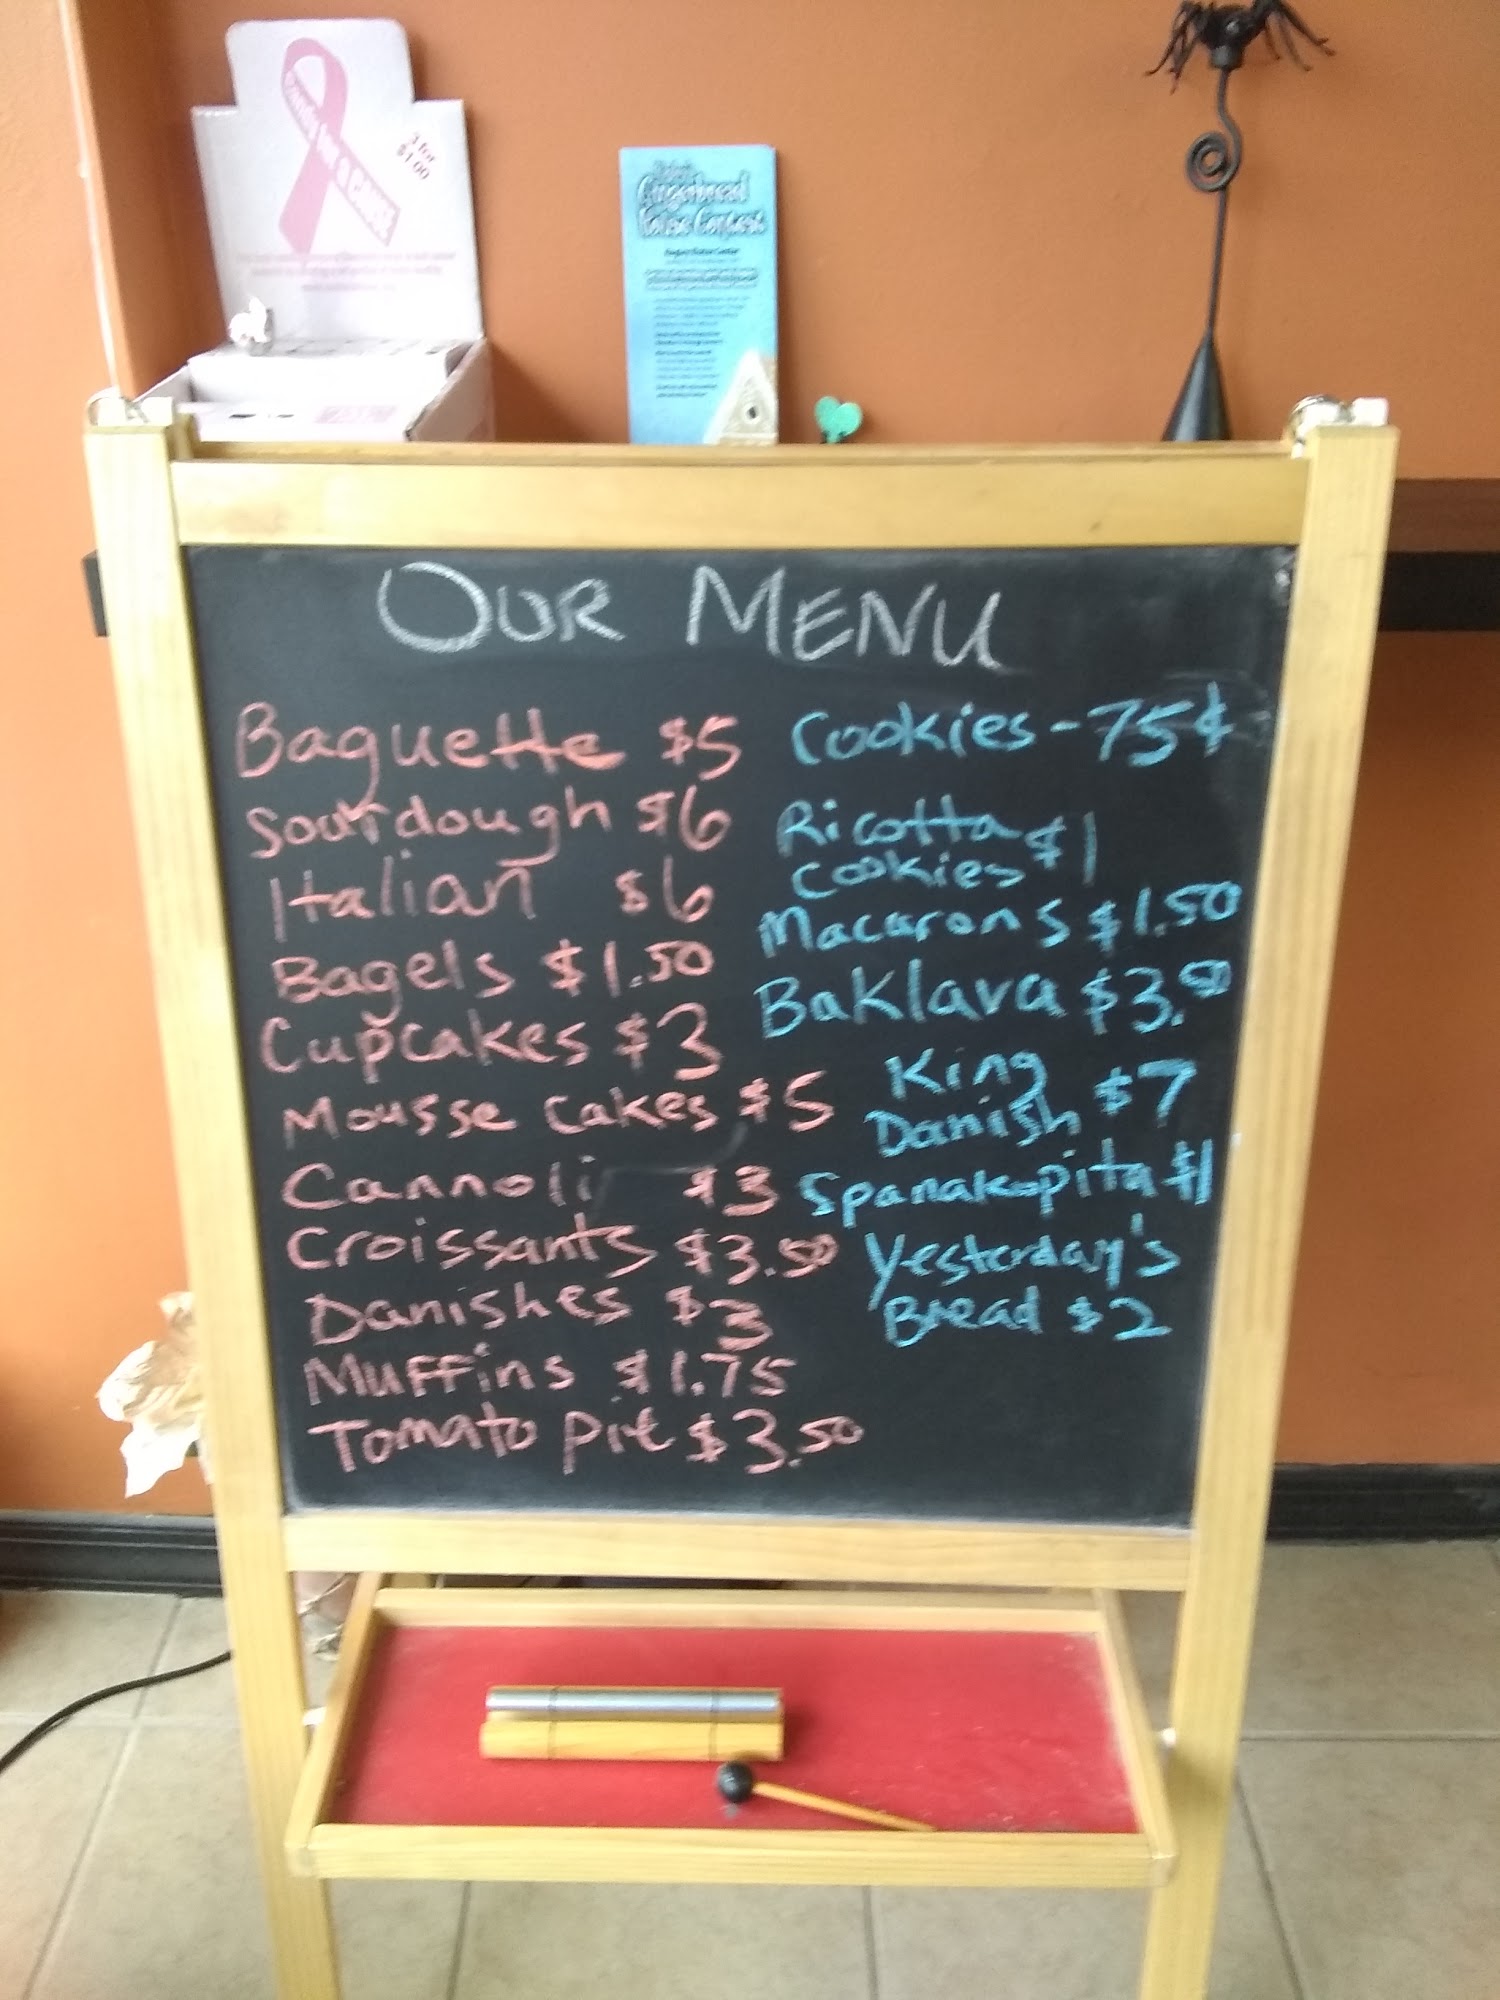 3 for
$1.00
Gingerbread
House Contest
OUR MENU
Baguette $5
Sourdough $6
Italian $6
Bagels $1.50
Cupcakes $3
Mousse Cakes $5
Cannoli $3
Croissants $3.50
Danishes $3
Muffins $1.75
Tomato pie $3.50
Cookies - 75¢
Ricotta
Cookies $1
Macarons $1.50
Baklava $3.50
King
Danish $7
Spanakopita $1
Yesterday's
Bread $2